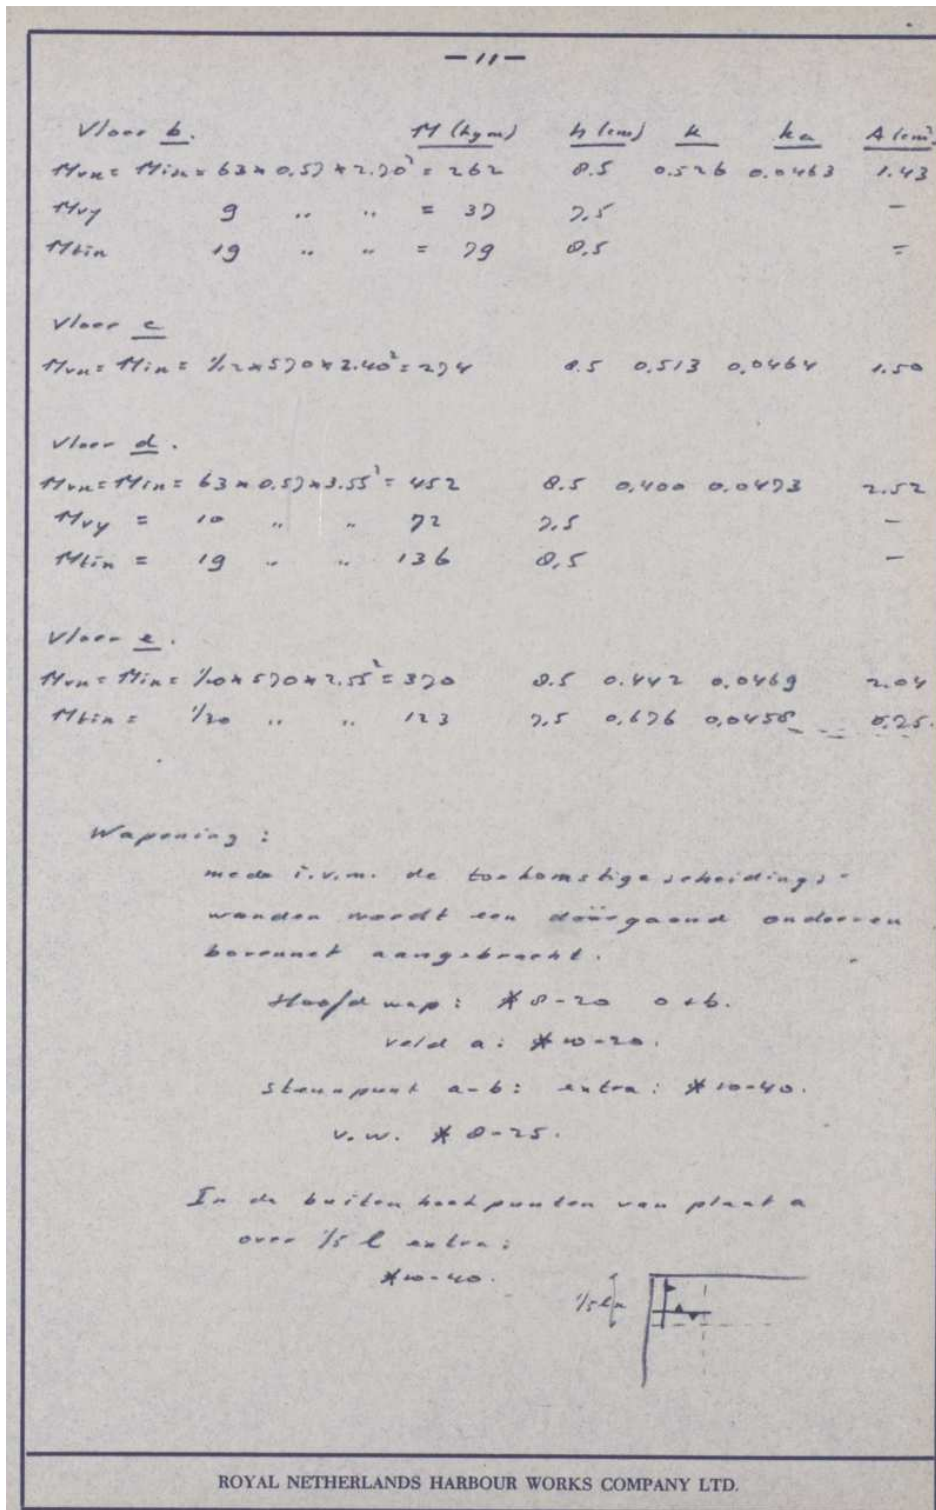 — 11 —
Vloer b. M (kgm) h (cm) k ka A (cm²)
Mvx = Mix = 63 x 0.57 x 2.70² = 262 8.5 0.526 0.0463 1.43
Mvy 9 „ „ = 37 7.5 —
Mtix 19 „ „ = 79 8.5 =
Vloer c
Mvx = Mix = 1/12 x 570 x 2.40² = 274 8.5 0.513 0.0464 1.50
Vloer d.
Mvx = Mix = 63 x 0.57 x 3.55² = 452 8.5 0.400 0.0473 2.52
Mvy = 10 „ „ 72 7.5 —
Mtix = 19 „ „ 136 8.5 —
Vloer e.
Mvx = Mix = 1/10 x 570 x 2.55² = 370 8.5 0.442 0.0469 2.04
Mtix = 1/30 „ „ 123 7.5 0.676 0.0455 0.25.
Wapening :
mede i.v.m. de toekomstige scheidings-
wanden wordt een doorgaand onder en
bovennet aangebracht.
Hoofdwap: * 8-20 o+b.
veld a: * 10-20.
steunpunt a-b: extra: * 10-40.
v.w. * 8-25.
In de buitenhoekpunten van plaat a
over 1/5 l extra:
* 10-40.
1/5 lx
ROYAL NETHERLANDS HARBOUR WORKS COMPANY LTD.